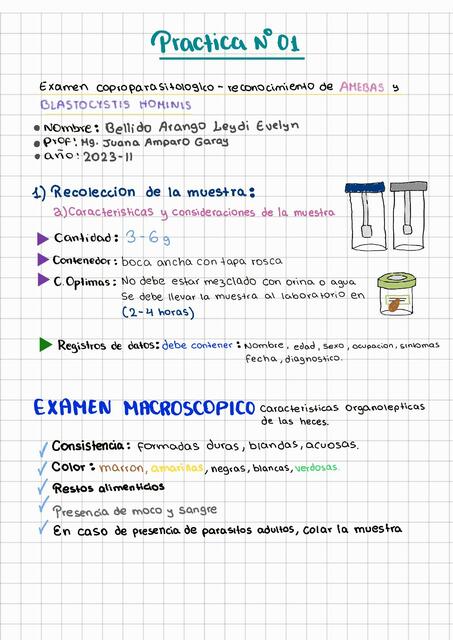 Practica N° 01
Examen coproparasitologico - reconocimiento de AMEBAS y
BLASTOCYSTIS HOMINIS
Nombre: Bellido Arango Leydi Evelyn
Prof: Mg. Juana Amparo Garay
año: 2023-II
1) Recoleccion de la muestra:
a) Caracteristicas y consideraciones de la muestra
Cantidad: 3-6g
Contenedor: boca ancha con tapa rosca
C. Optimas: No debe estar mezclado con orina o agua
Se debe llevar la muestra al laboratorio en
(2-4 horas)
Registros de datos: debe contener: Nombre, edad, sexo, ocupacion, sintomas
fecha, diagnostico.
EXAMEN MACROSCOPICO Caracteristicas Organolepticas
de las heces.
Consistencia: formadas duras, blandas, acuosas.
Color: marron, amarillas, negras, blancas, verdosas.
Restos alimenticios
Presencia de moco y sangre
En caso de presencia de parasitos adultos, colar la muestra